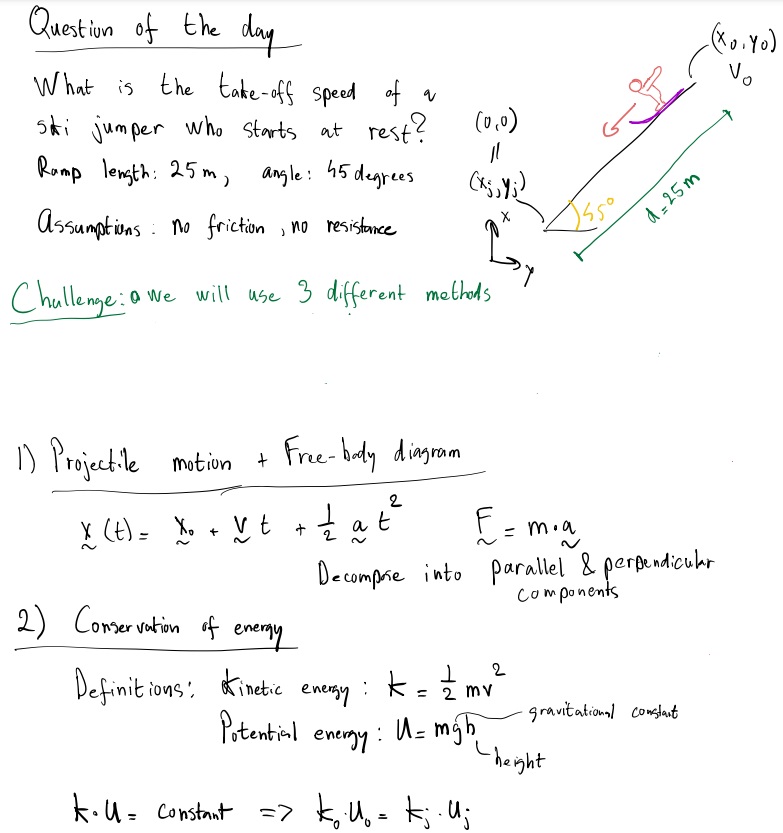 Question of the day
What is the take-off speed of a
ski jumper who starts at rest?
Ramp length: 25m, angle: 45 degrees
Assumptions: no friction, no resistance
(x₀,y₀)
V₀
(0,0)
=
(xⱼ,yⱼ)
45°
d=25m
x
y
Challenge: we will use 3 different methods
1) Projectile motion + Free-body diagram
x(t) = x₀ + v t + 1/2 a t² F = m·a
Decompose into parallel & perpendicular
components
2) Conservation of energy
Definitions: Kinetic energy: k = 1/2 mv²
Potential energy: U = mgh
gravitational constant
height
k·U = constant => k₀·U₀ = kⱼ·Uⱼ